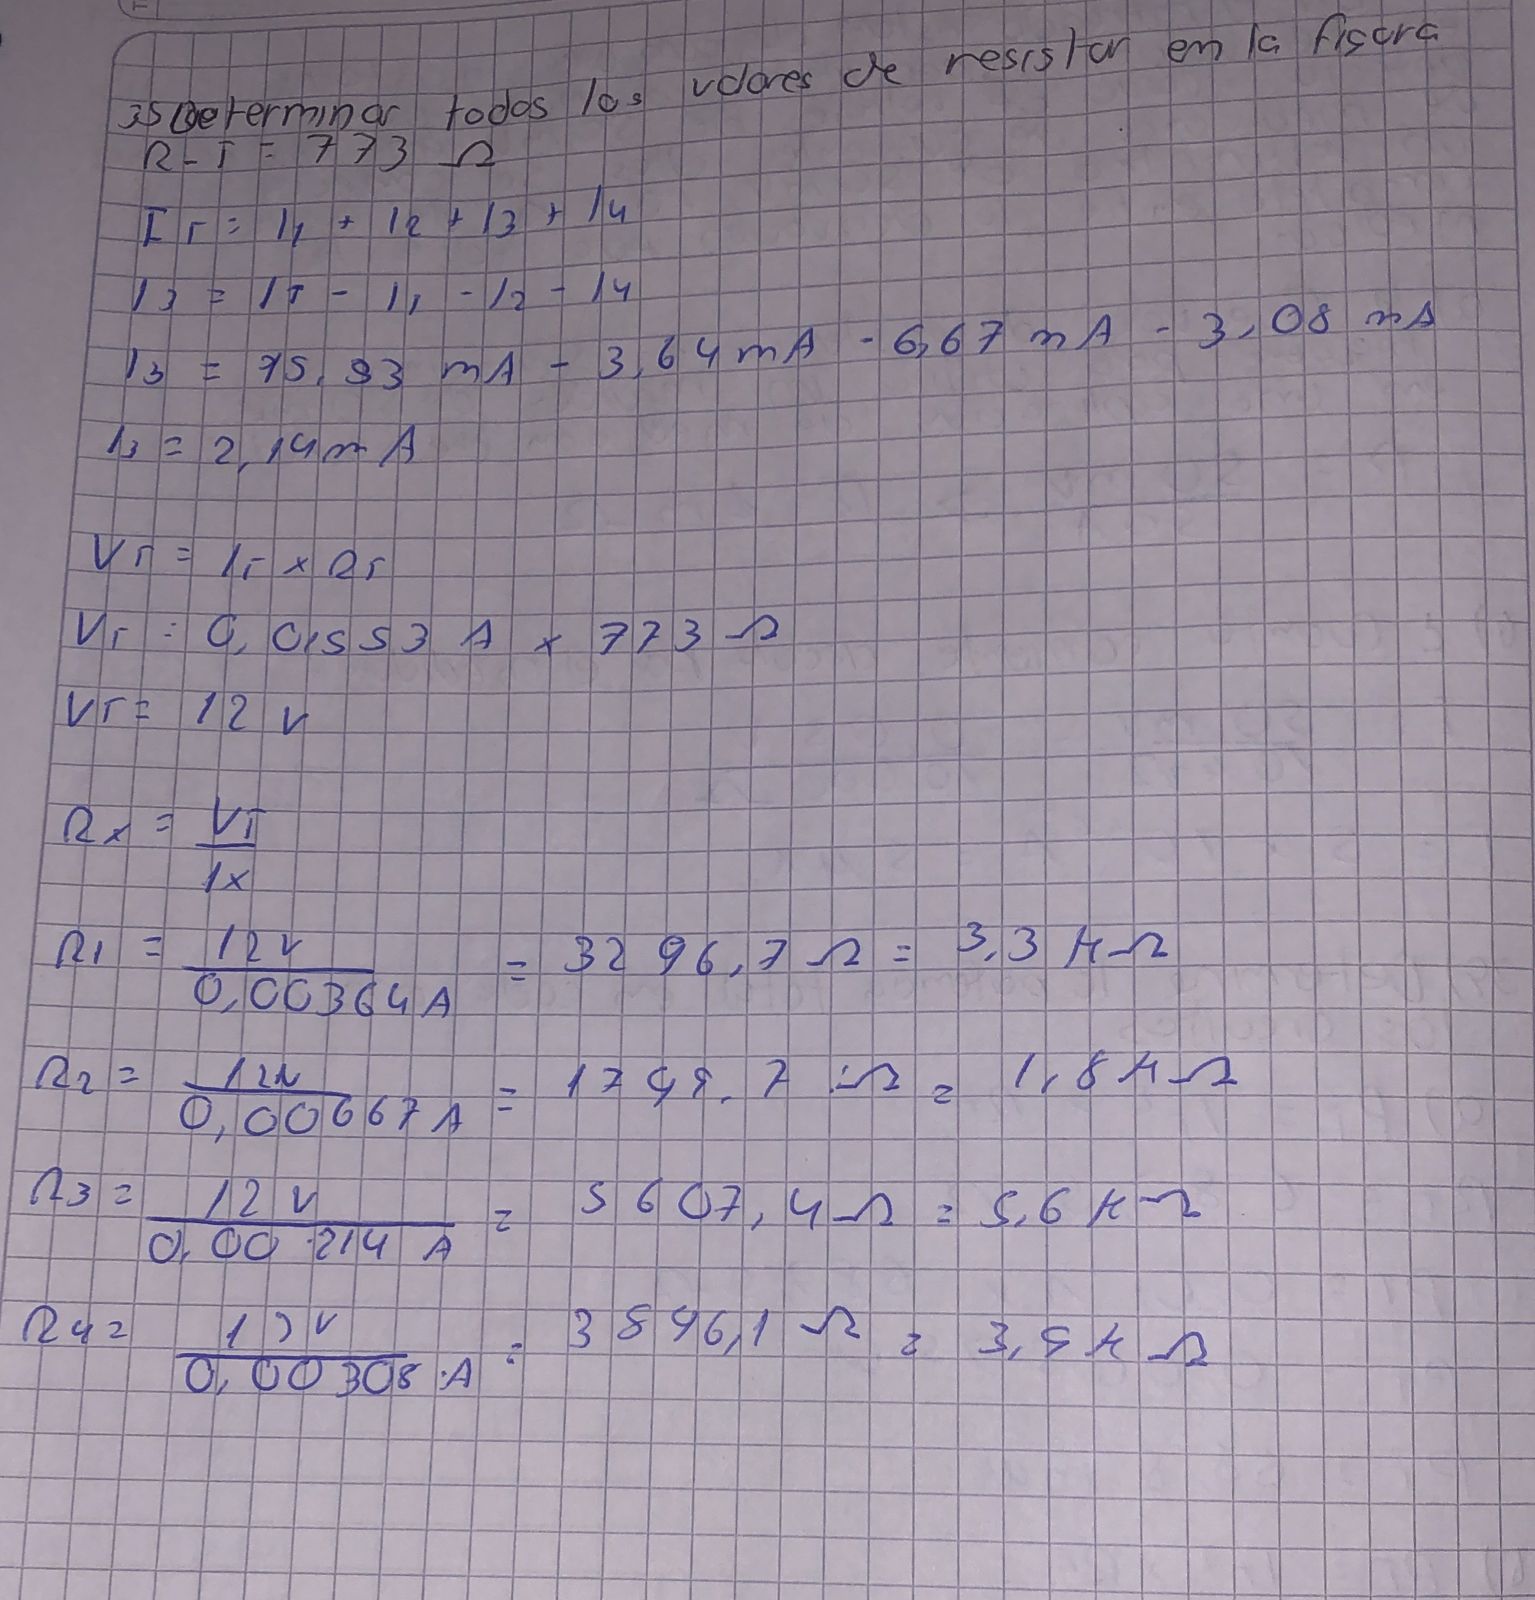 35 Determinar todos los valores de resistor en la figura
R-T = 773 Ω
IT = I1 + I2 + I3 + I4
I3 = IT - I1 - I2 - I4
I3 = 15,53 mA - 3,64 mA - 6,67 mA - 3,08 mA
I3 = 2,14 mA
VT = IT x RT
VT = 0,01553 A x 773 Ω
VT = 12 V
Rx = VT / Ix
R1 = 12 V / 0,00364 A = 3296,7 Ω = 3,3 KΩ
R2 = 12 V / 0,00667 A = 1799,7 Ω = 1,8 KΩ
R3 = 12 V / 0,00214 A = 5607,4 Ω = 5,6 KΩ
R4 = 12 V / 0,00308 A = 3896,1 Ω = 3,9 KΩ